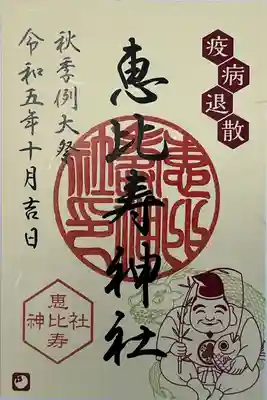 疫病退散
恵比寿神社
秋季例大祭
令和五年十月吉日
恵比寿神社